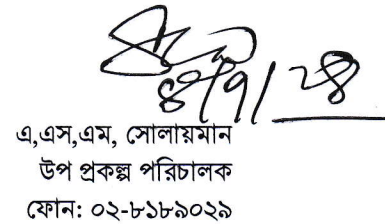 ৪/৭/২৪
এ,এস,এম, সোলায়মান
উপ প্রকল্প পরিচালক
ফোন: ০২-৮১৮৯০২৯